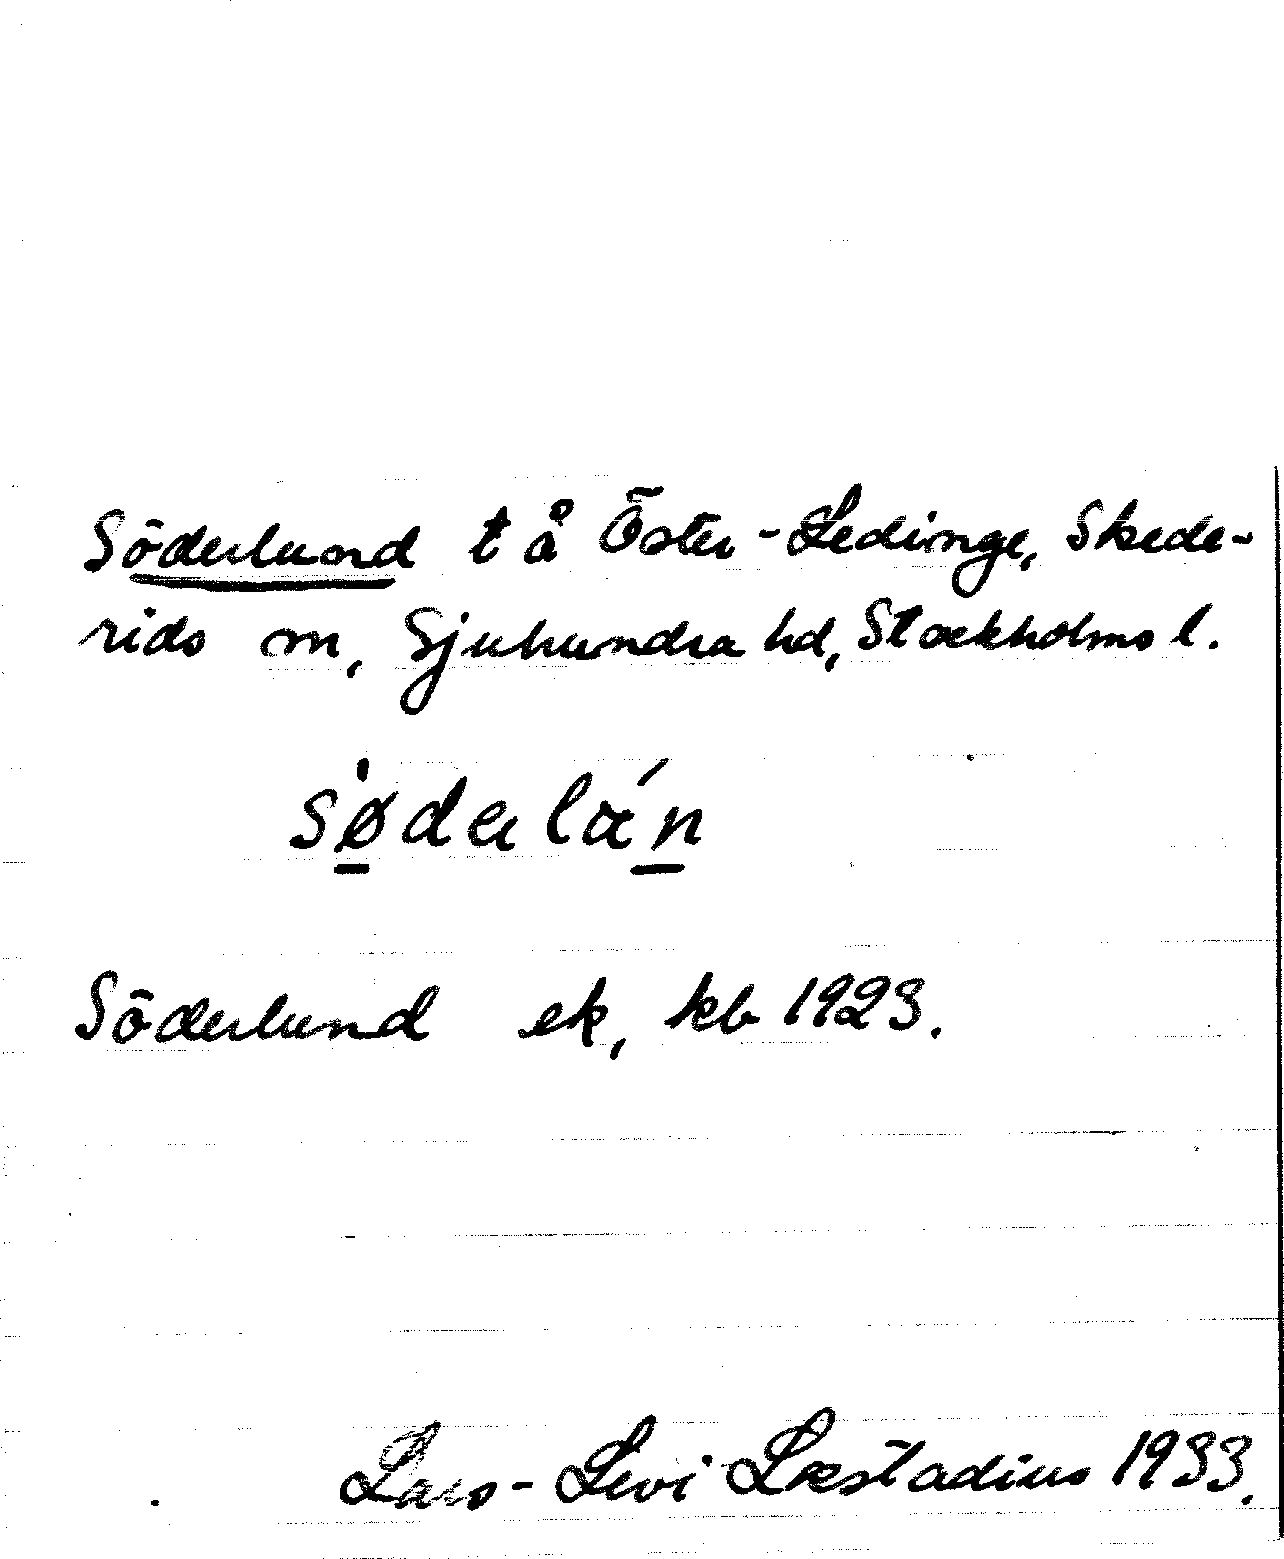 Söderlund t å Öster-Ledinge, Skede-
rids sn, Sjuhundra hd, Stockholms l.
sø̀dəlán
Söderlund ek, kb 1923.
Lars-Levi Læstadius 1933.